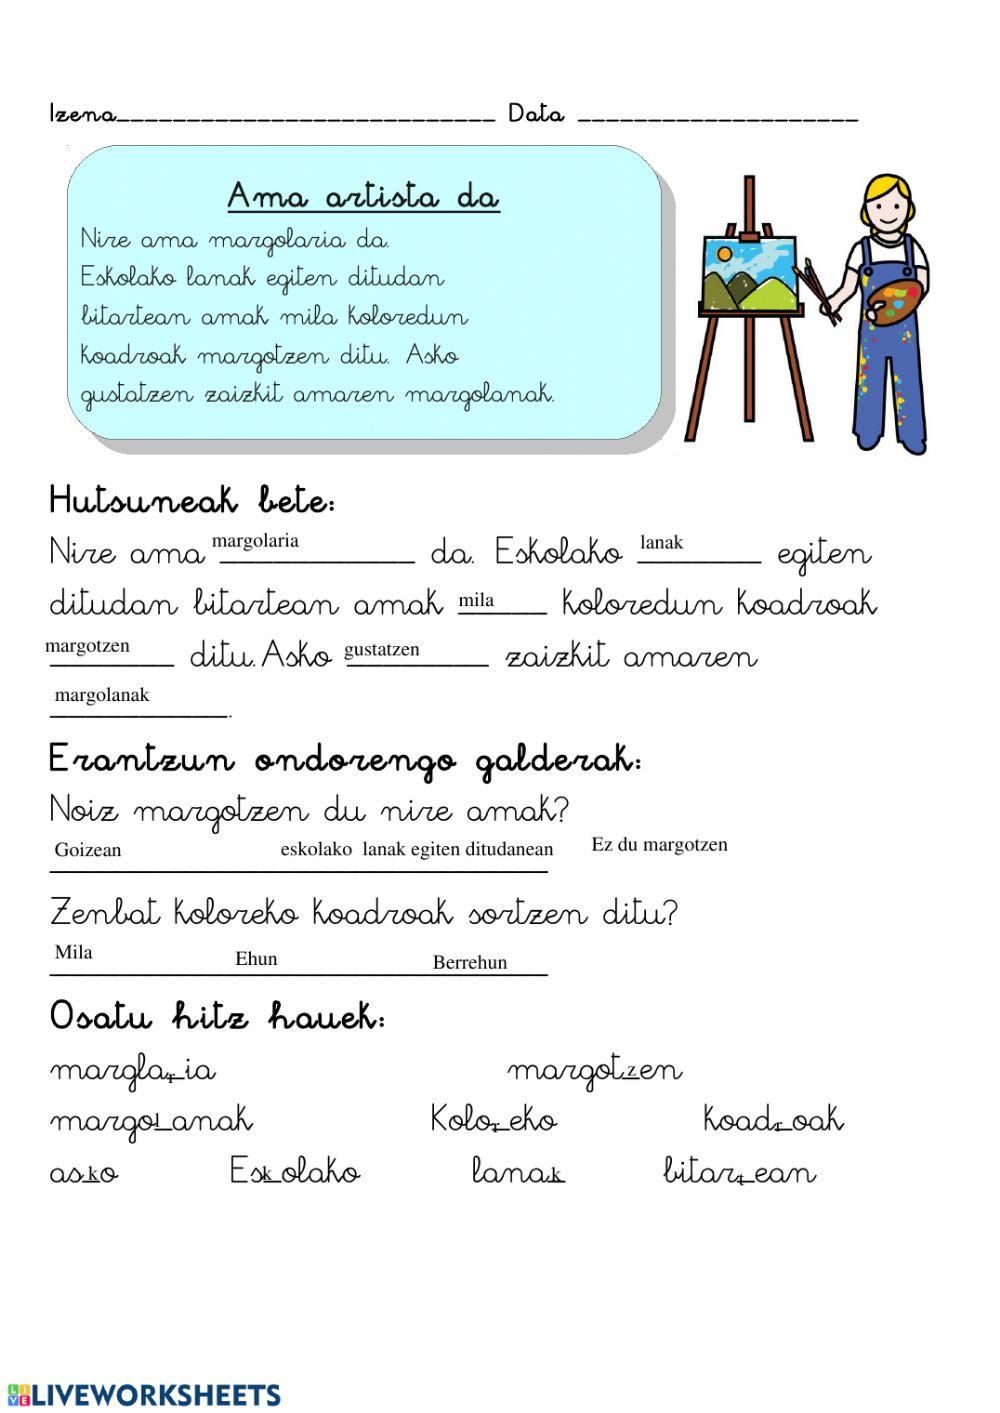 Izena___________________________ Data ____________________
Ama artista da
Nire ama margolaria da.
Eskolako lanak egiten ditudan
bitartean amak mila koloredun
koadroak margotzen ditu. Asko
gustatzen zaizkit amaren margolanak.
Hutsuneak bete:
Nire ama margolaria da. Eskolako lanak egiten
ditudan bitartean amak mila koloredun koadroak
margotzen ditu. Asko gustatzen zaizkit amaren
margolanak.
Erantzun ondorengo galderak:
Noiz margotzen du nire amak?
Goizean eskolako lanak egiten ditudanean Ez du margotzen
Zenbat koloreko koadroak sortzen ditu?
Mila Ehun Berrehun
Osatu hitz hauek:
marglaria margotzen
margolanak Koloreko koadroak
asko Eskolako lanak bitartean
LIVEWORKSHEETS